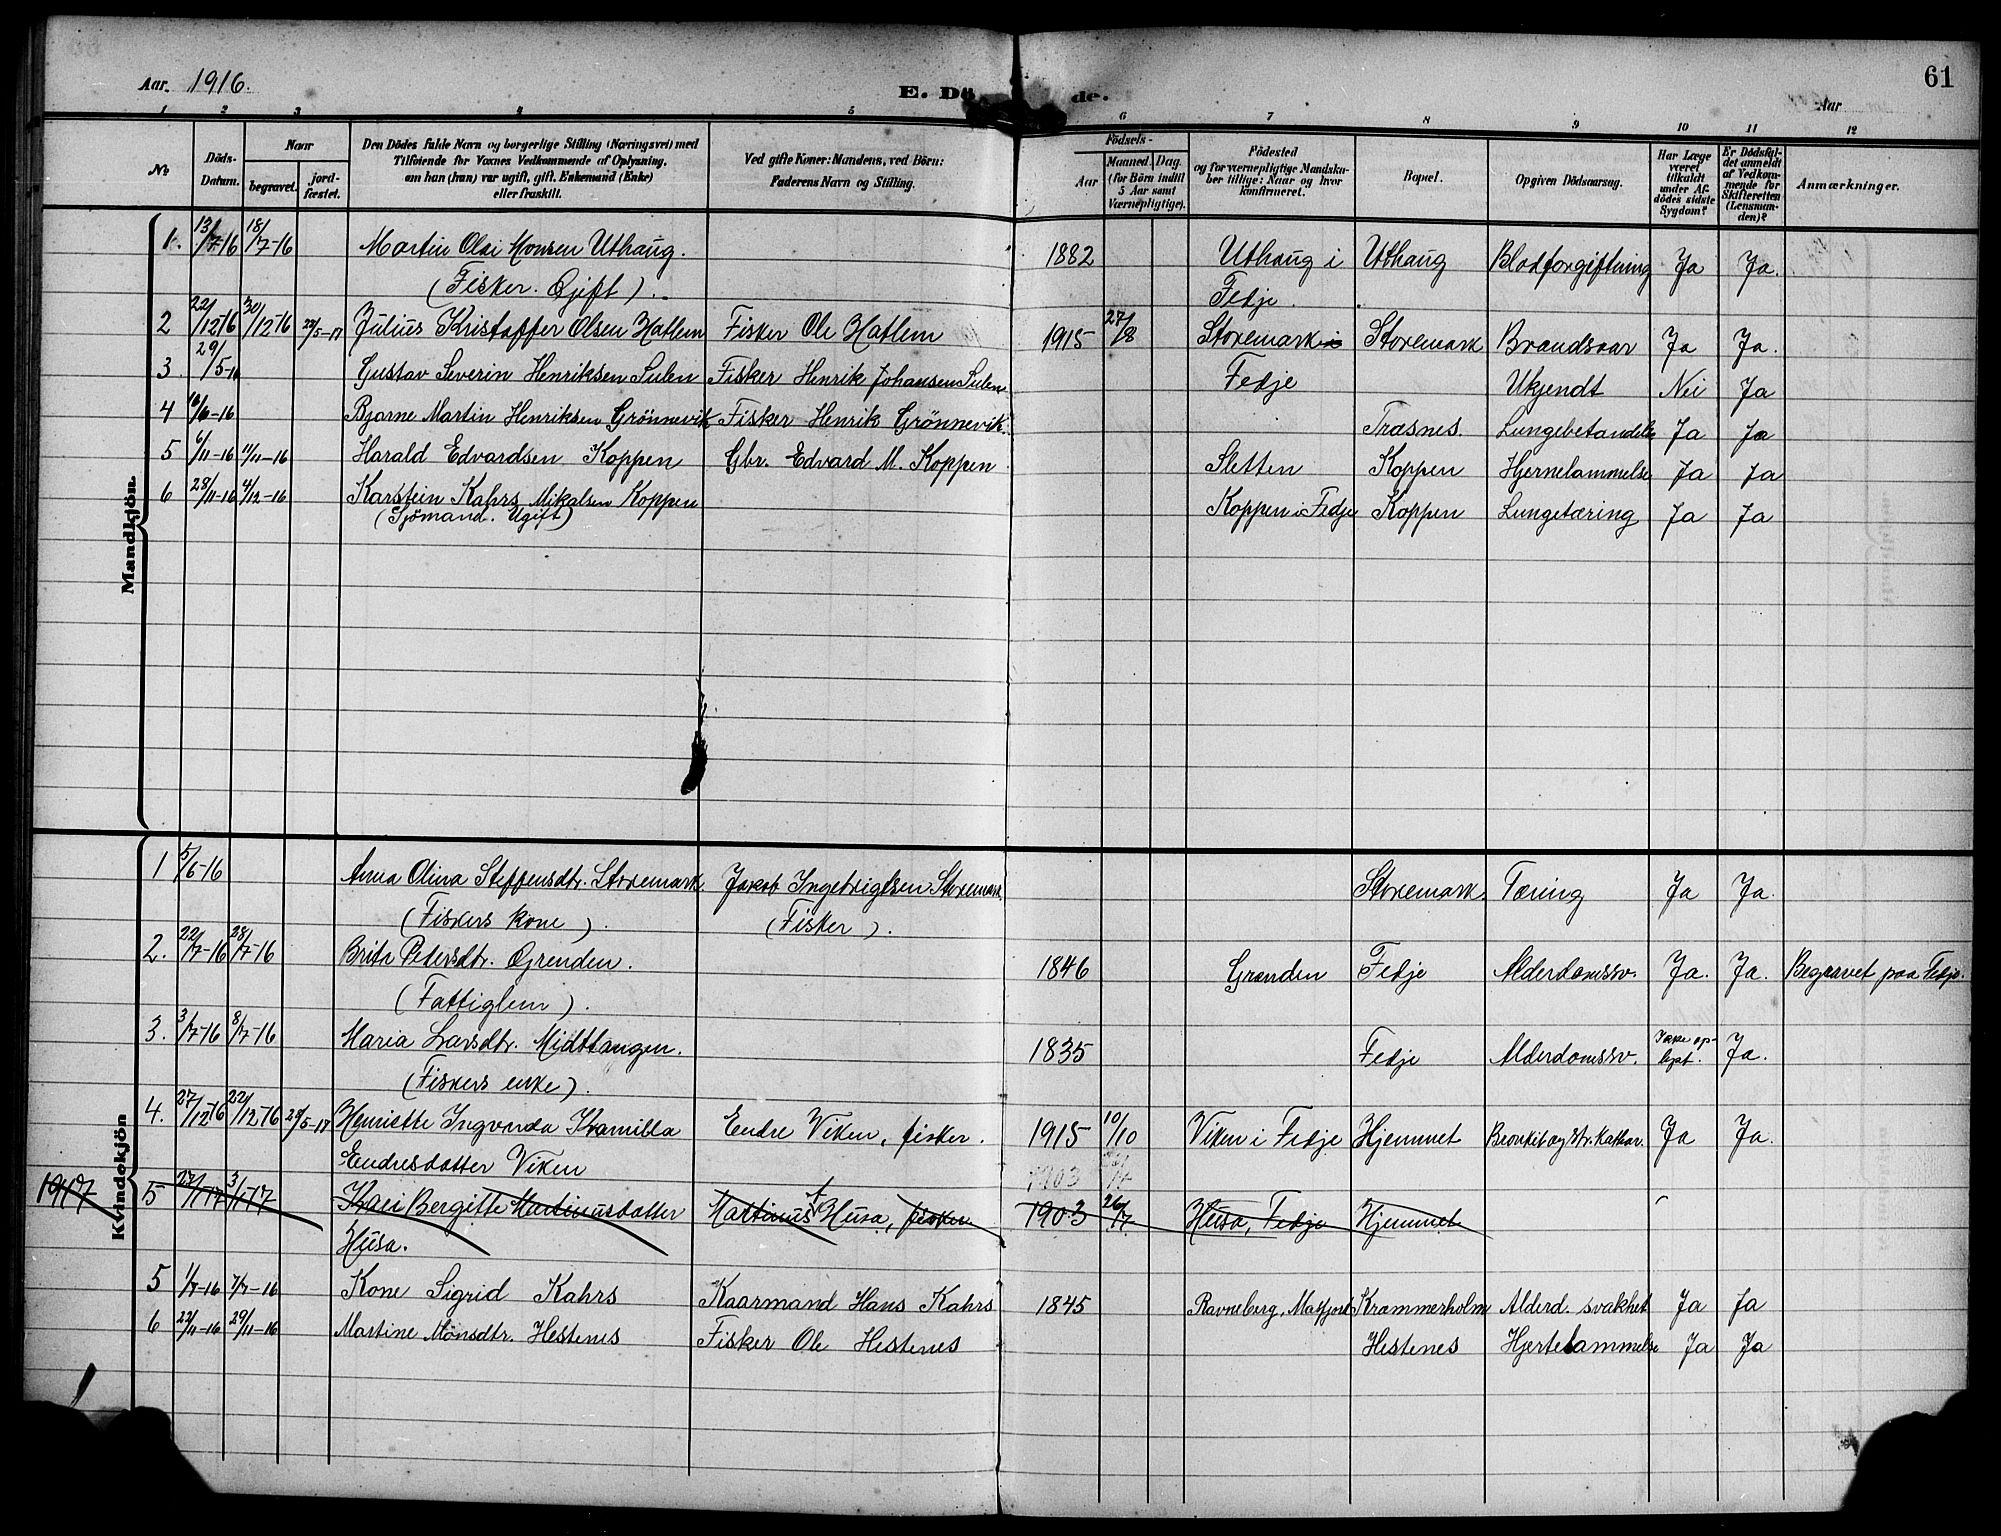 61
Aar. 1916.
E. Dö de.
Aar
1 2 3 4 5 6 7 8 9 10 11 12
No
Döds-Datum.
Naar
begravet.
jord-fæstet.
Den Dödes fulde Navn og borgerlige Stilling (Næringsvei) med
Tilföiende for Voxnes Vedkommende af Oplysning,
om han (hun) var ugift, gift, Enkemand (Enke)
eller fraskilt.
Ved gifte Koner: Mandens, ved Börn:
Faderens Navn og Stilling.
Födsels-
Aar
Maaned. Dag.
(for Börn indtil
5 Aar samt
Værnepligtige).
Födested
og for værnepligtige Mandska-
ber tillige: Naar og hvor
konfirmeret.
Bopæl.
Opgiven Dödsaarsag.
Har Læge
været
tilkaldt
under Af-
dödes sidste
Sygdom?
Er Dödsfal-
det anmeldt
af Vedkom-
mende for
Skifteretten
(Lensman-
den)?
Anmærkninger.
Mandkjön.
1. 13/7-16 18/7-16 Martin Olai Monsen Uthaug. 1882 Uthaug i Uthaug Blodforgiftning Ja Ja.
(Fisker. Gift). Fedje.
2 22/12-16 30/12-16 29/5-17 Julius Kristoffer Olsen Hatlem Fisker Ole Hatlem 1915 27/8 Storemark i Storemark Brandsaar Ja Ja.
3. 29/5-16 Gustav Severin Henriksen Sulen Fisker Henrik Johansen Sulen Fedje Ukjendt Nei Ja
4 16/6-16 Bjarne Martin Henriksen Grönnevik Fisker Henrik Grönnevik. Træsnes. Lungebetændelse Ja Ja
5 6/11-16 11/11-16 Harald Edvardsen Koppen Gbr. Edvard M. Koppen Sletten Koppen Hjernelammelse Ja Ja
6 28/11-16 4/12-16 Karstein Kahrs Mikalsen Koppen Koppen i Fedje Koppen Lungetæring Ja Ja
(Sjömand. Ugift)
Kvindekjön
1 5/6-16 Anna Olina Steffensdtr. Storemark Jakob Ingebrigtsen Storemark, Storemark. Tæring Ja Ja.
(Fiskers kone). (Fisker).
2. 22/7-16 28/7-16 Brita Petersdtr. Grenden. 1846 Grenden Fedje Alderdomssv. Ja. Ja. Begravet paa Fedje.
(Fattiglem).
3. 3/7-16 8/7-16 Maria Larsdtr. Midttangen. 1835 Fedje Alderdomssv. Ikke op-lyst. Ja.
(Fiskers enke).
4. 27/12-16 22/12-16 29/5-17 Henriette Ingvarda Kamilla Endre Viken, fisker. 1915 10/10 Viken i Fedje Hjemmet Bronkit og str. Katkar. Ja Ja.
Endresdatter Viken 1903
1917 5 27/1-17 3/1-17 Kari Bergitte Martinusdatter Martinus Husa, fisker 1903 26/7. Husa, Fedje Hjemmet
Husa.
5 1/7-16 7/7-16 Kone Sigrid Kahrs Kaarmand Hans Kahrs 1845 Ravneberg, Masfjord Krammerholm Alderd. svakhet Ja Ja
6 22/11-16 29/11-16 Martine Mönsdtr. Hestenes Fisker Ole Hestenes Hestenes Hjertelammelse Ja Ja